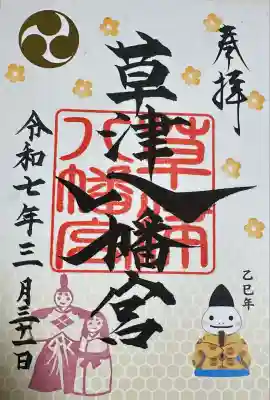 奉拝
草津八幡宮
草津
八幡宮
令和七年三月三十一日
乙巳年